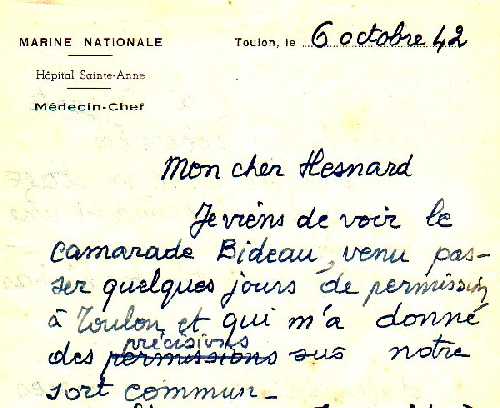 MARINE NATIONALE
Toulon, le 6 octobre 42
Hôpital Sainte-Anne
Médecin-Chef
Mon cher Hesnard
Je viens de voir le
camarade Bideau, venu pas-
ser quelques jours de permission
à Toulon et qui m'a donné
précisions
des permissions sur notre
sort commun -